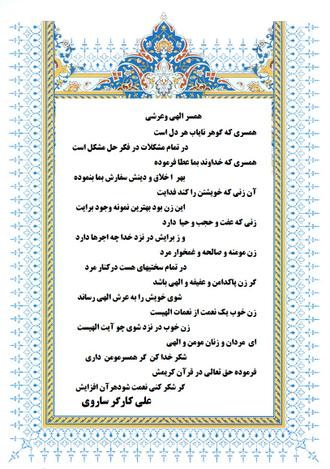 همسر الهی وعرشی
همسری که گوهر نایاب هر دل است
در تمام مشکلات در فکر حل مشکل است
همسری که خداوند بما عطا فرموده
بهر اخلاق و دینش سفارش بما بنموده
آن زنی که خویشتن را کند فدایت
این زن بود بهترین نمونه وجود برایت
زنی که عفت و حجب و حیا دارد
و ز برایش در نزد خدا چه اجرها دارد
زن مومنه و صالحه و غمخوار مرد
در تمام سختیهای هست درکنار مرد
گر زن پاکدامن و عفیفه و الهی باشد
شوی خویش را به عرش الهی رساند
زن خوب یک نعمت از نعمات الهیست
زن خوب در نزد شوی چو آیت الهیست
ای مردان و زنان مومن و الهی
شکر خدا کن گر همسرمومن داری
فرموده حق تعالی در قرآن کریمش
گر شکر کنی نعمت شودهرآن افزایش
علی کارگر ساروی